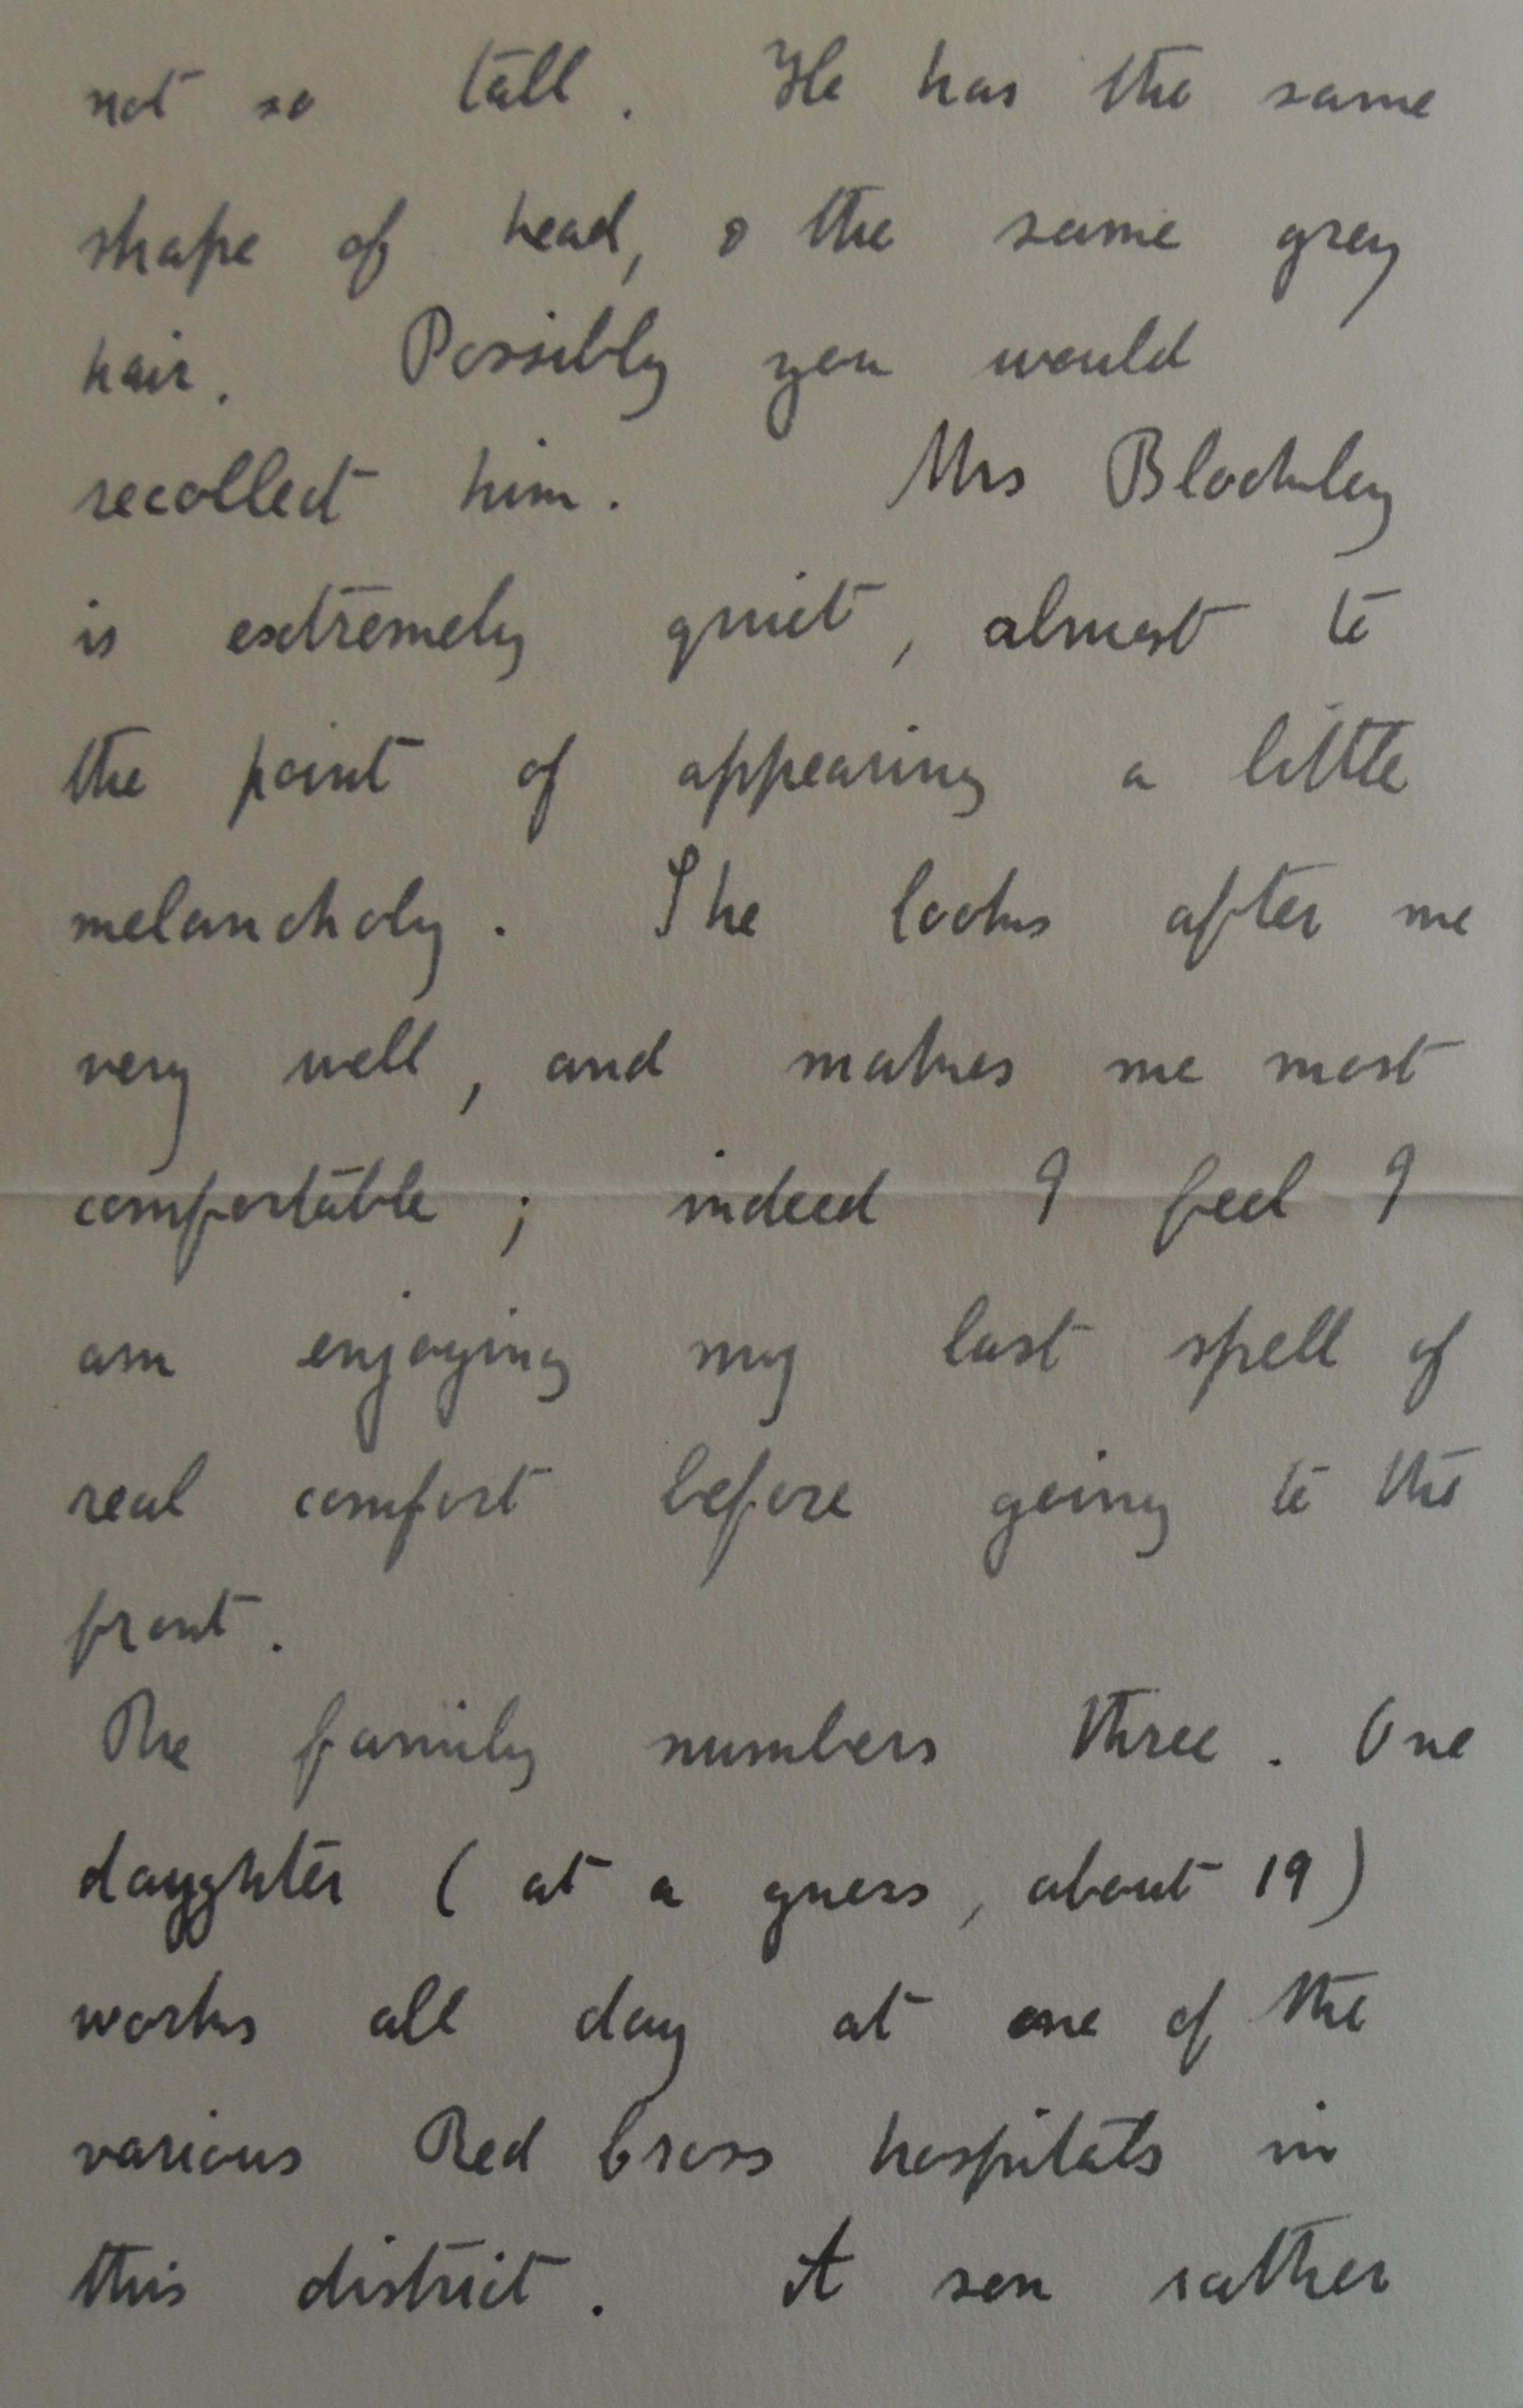 not so tall. He has the same
shape of head, & the same grey
hair. Possibly you would
recollect him. Mrs Blockley
is extremely quiet, almost to
the point of appearing a little
melancholy. She looks after me
very well, and makes me most
comfortable; indeed I feel I
am enjoying my last spell of
real comfort before going to the
front.
The family numbers three. One
daughter (at a guess, about 19)
works all day at one of the
various Red Cross hospitals in
this district. A son rather